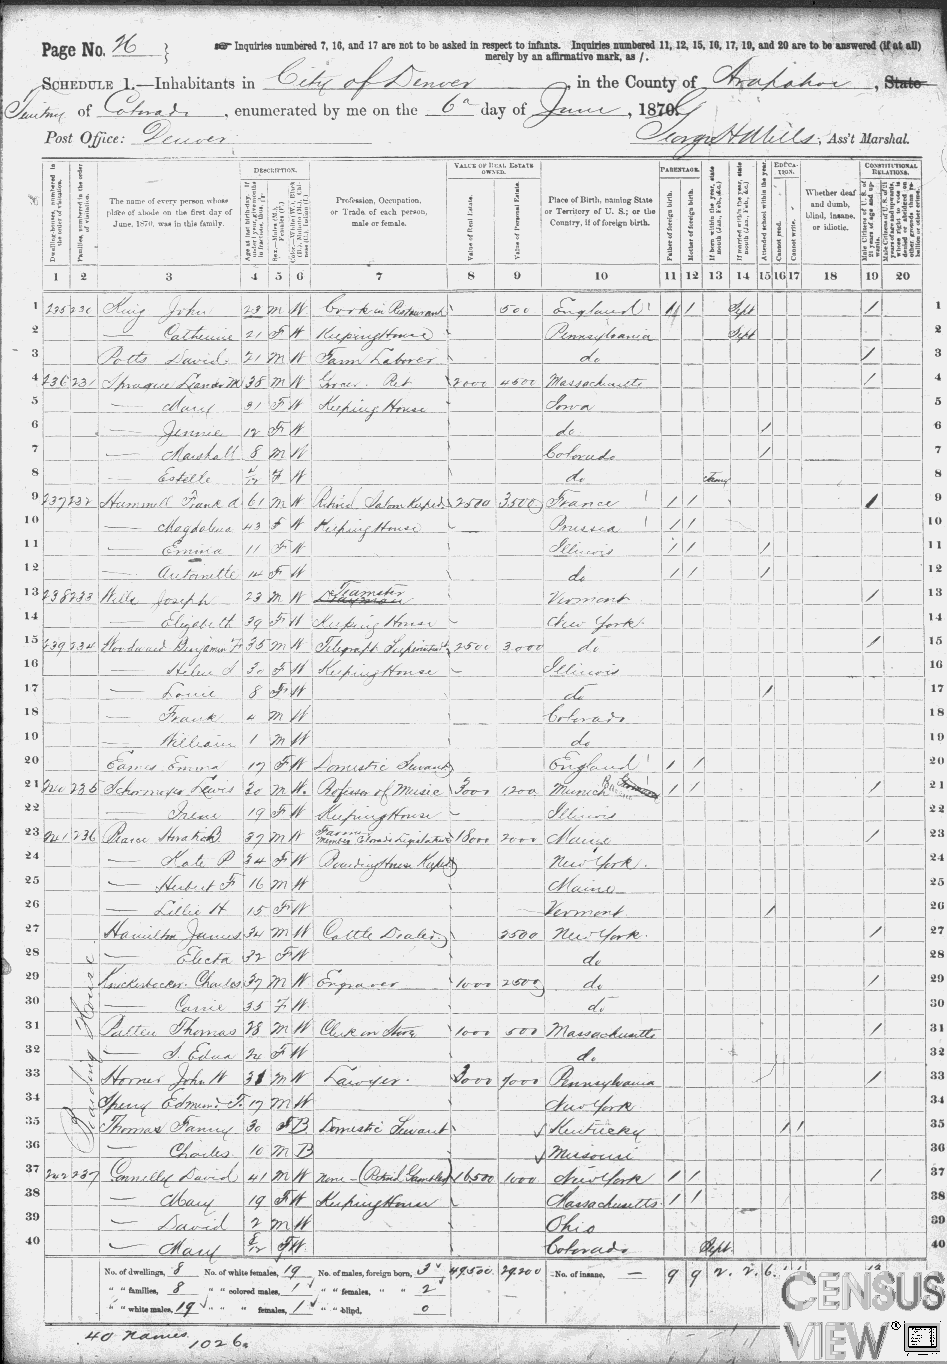 Page No. 26
☞ Inquiries numbered 7, 16, and 17 are not to be asked in respect to infants. Inquiries numbered 11, 12, 15, 16, 17, 19, and 20 are to be answered (if at all)
merely by an affirmative mark, as /.
SCHEDULE 1.—Inhabitants in City of Denver, in the County of Arapahoe, State
Territory of Colorado, enumerated by me on the 6 day of June, 1870.
Post Office: Denver George H Mills, Ass't Marshal.
DESCRIPTION. VALUE OF REAL ESTATE OWNED. PARENTAGE. EDUCATION. CONSTITUTIONAL RELATIONS.
Dwelling-houses, numbered in the order of visitation.
Families, numbered in the order of visitation.
The name of every person whose place of abode on the first day of June, 1870, was in this family.
Profession, Occupation, or Trade of each person, male or female.
Value of Real Estate.
Value of Personal Estate.
Place of Birth, naming State or Territory of U. S.; or the Country, if of foreign birth.
Father of foreign birth.
Mother of foreign birth.
Attended school within the year.
Cannot read.
Cannot write.
Whether deaf and dumb, blind, insane, or idiotic.
1 2 3 4 5 6 7 8 9 10 11 12 13 14 15 16 17 18 19 20
1 235 230 King John 23 M W Cook in Restaurant 500 England / / Sept / 1
2 — Catherine 21 F W Keeping House Pennsylvania Sept 2
3 Potts David 21 M W Farm Laborer do / 3
4 236 231 Sprague Leander M 38 M W Grocer Ret 2000 4500 Massachusetts / 4
5 — Mary 31 F W Keeping House Iowa 5
6 — Jennie 12 F W do / 6
7 — Marshall 8 M W Colorado / 7
8 — Estelle F W do 8
9 237 232 Hammell Frank A 61 M W Retired Saloon Keeper 2500 3500 France / / / 9
10 — Magdalena 43 F W Keeping House Prussia / / 10
11 — Emma 11 F W Illinois / / / 11
12 — Antoinette 14 F W do / / / 12
13 238 233 Wells Joseph 23 M W Teamster Vermont / 13
14 — Elizabeth 39 F W Keeping House New York 14
15 239 234 Woodward Benjamin F 35 M W Telegraph Superintendt 2500 3000 do / 15
16 — Helen S 30 F W Keeping House Illinois 16
17 — Louie 8 F W do / 17
18 — Frank 4 M W Colorado 18
19 — William 1 M W do 19
20 Eames Emma 17 F W Domestic Servant England / / 20
21 240 235 Schormoyer Lewis 30 M W Professor of Music 3000 1200 Munich / / / 21
22 — Irene 19 F W Keeping House Illinois 22
23 241 236 Pearce Horatio B 37 M W Farmer Member Colorado Legislature 18000 2000 Maine / 23
24 — Kate P 34 F W Boarding House Keeper New York 24
25 — Herbert F 16 M W Maine 25
26 — Lillie H 15 F W Vermont / 26
27 Hamilton James 34 M W Cattle Dealer 2500 New York / 27
28 — Electa 32 F W do 28
29 Knickerbocker Charles 37 M W Engraver 1000 2500 do / 29
30 — Carrie 35 F W do 30
31 Patten Thomas 28 M W Clerk in Store 1000 500 Massachusetts / 31
32 — S. Edna 24 F W do 32
33 Horner John W 31 M W Lawyer 3000 Pennsylvania / 33
34 Edmund T. 17 M W New York 34
35 Thomas Fanny 30 F B Domestic Servant Kentucky / / 35
36 — Charles 10 M B Missouri 36
Boarding House
37 242 237 Connelly David 41 M W None (Retired Gambler) 16,500 1000 New York / / / 37
38 — Mary 19 F W Keeping House Massachusetts / / 38
39 — David 2 M W Ohio 39
40 — Mary F W Colorado Sept. 40
No. of dwellings, 8 No. of white females, 19 No. of males, foreign born, 3 49,500 29,200 No. of insane, — 9 9 2 2 6 1 1
" " families, 8 " " colored males, 1 " " females, " " 2
" " white males, 19 " " " females, 1 " " blind, 0
40 names
1026
CENSUS
VIEW®